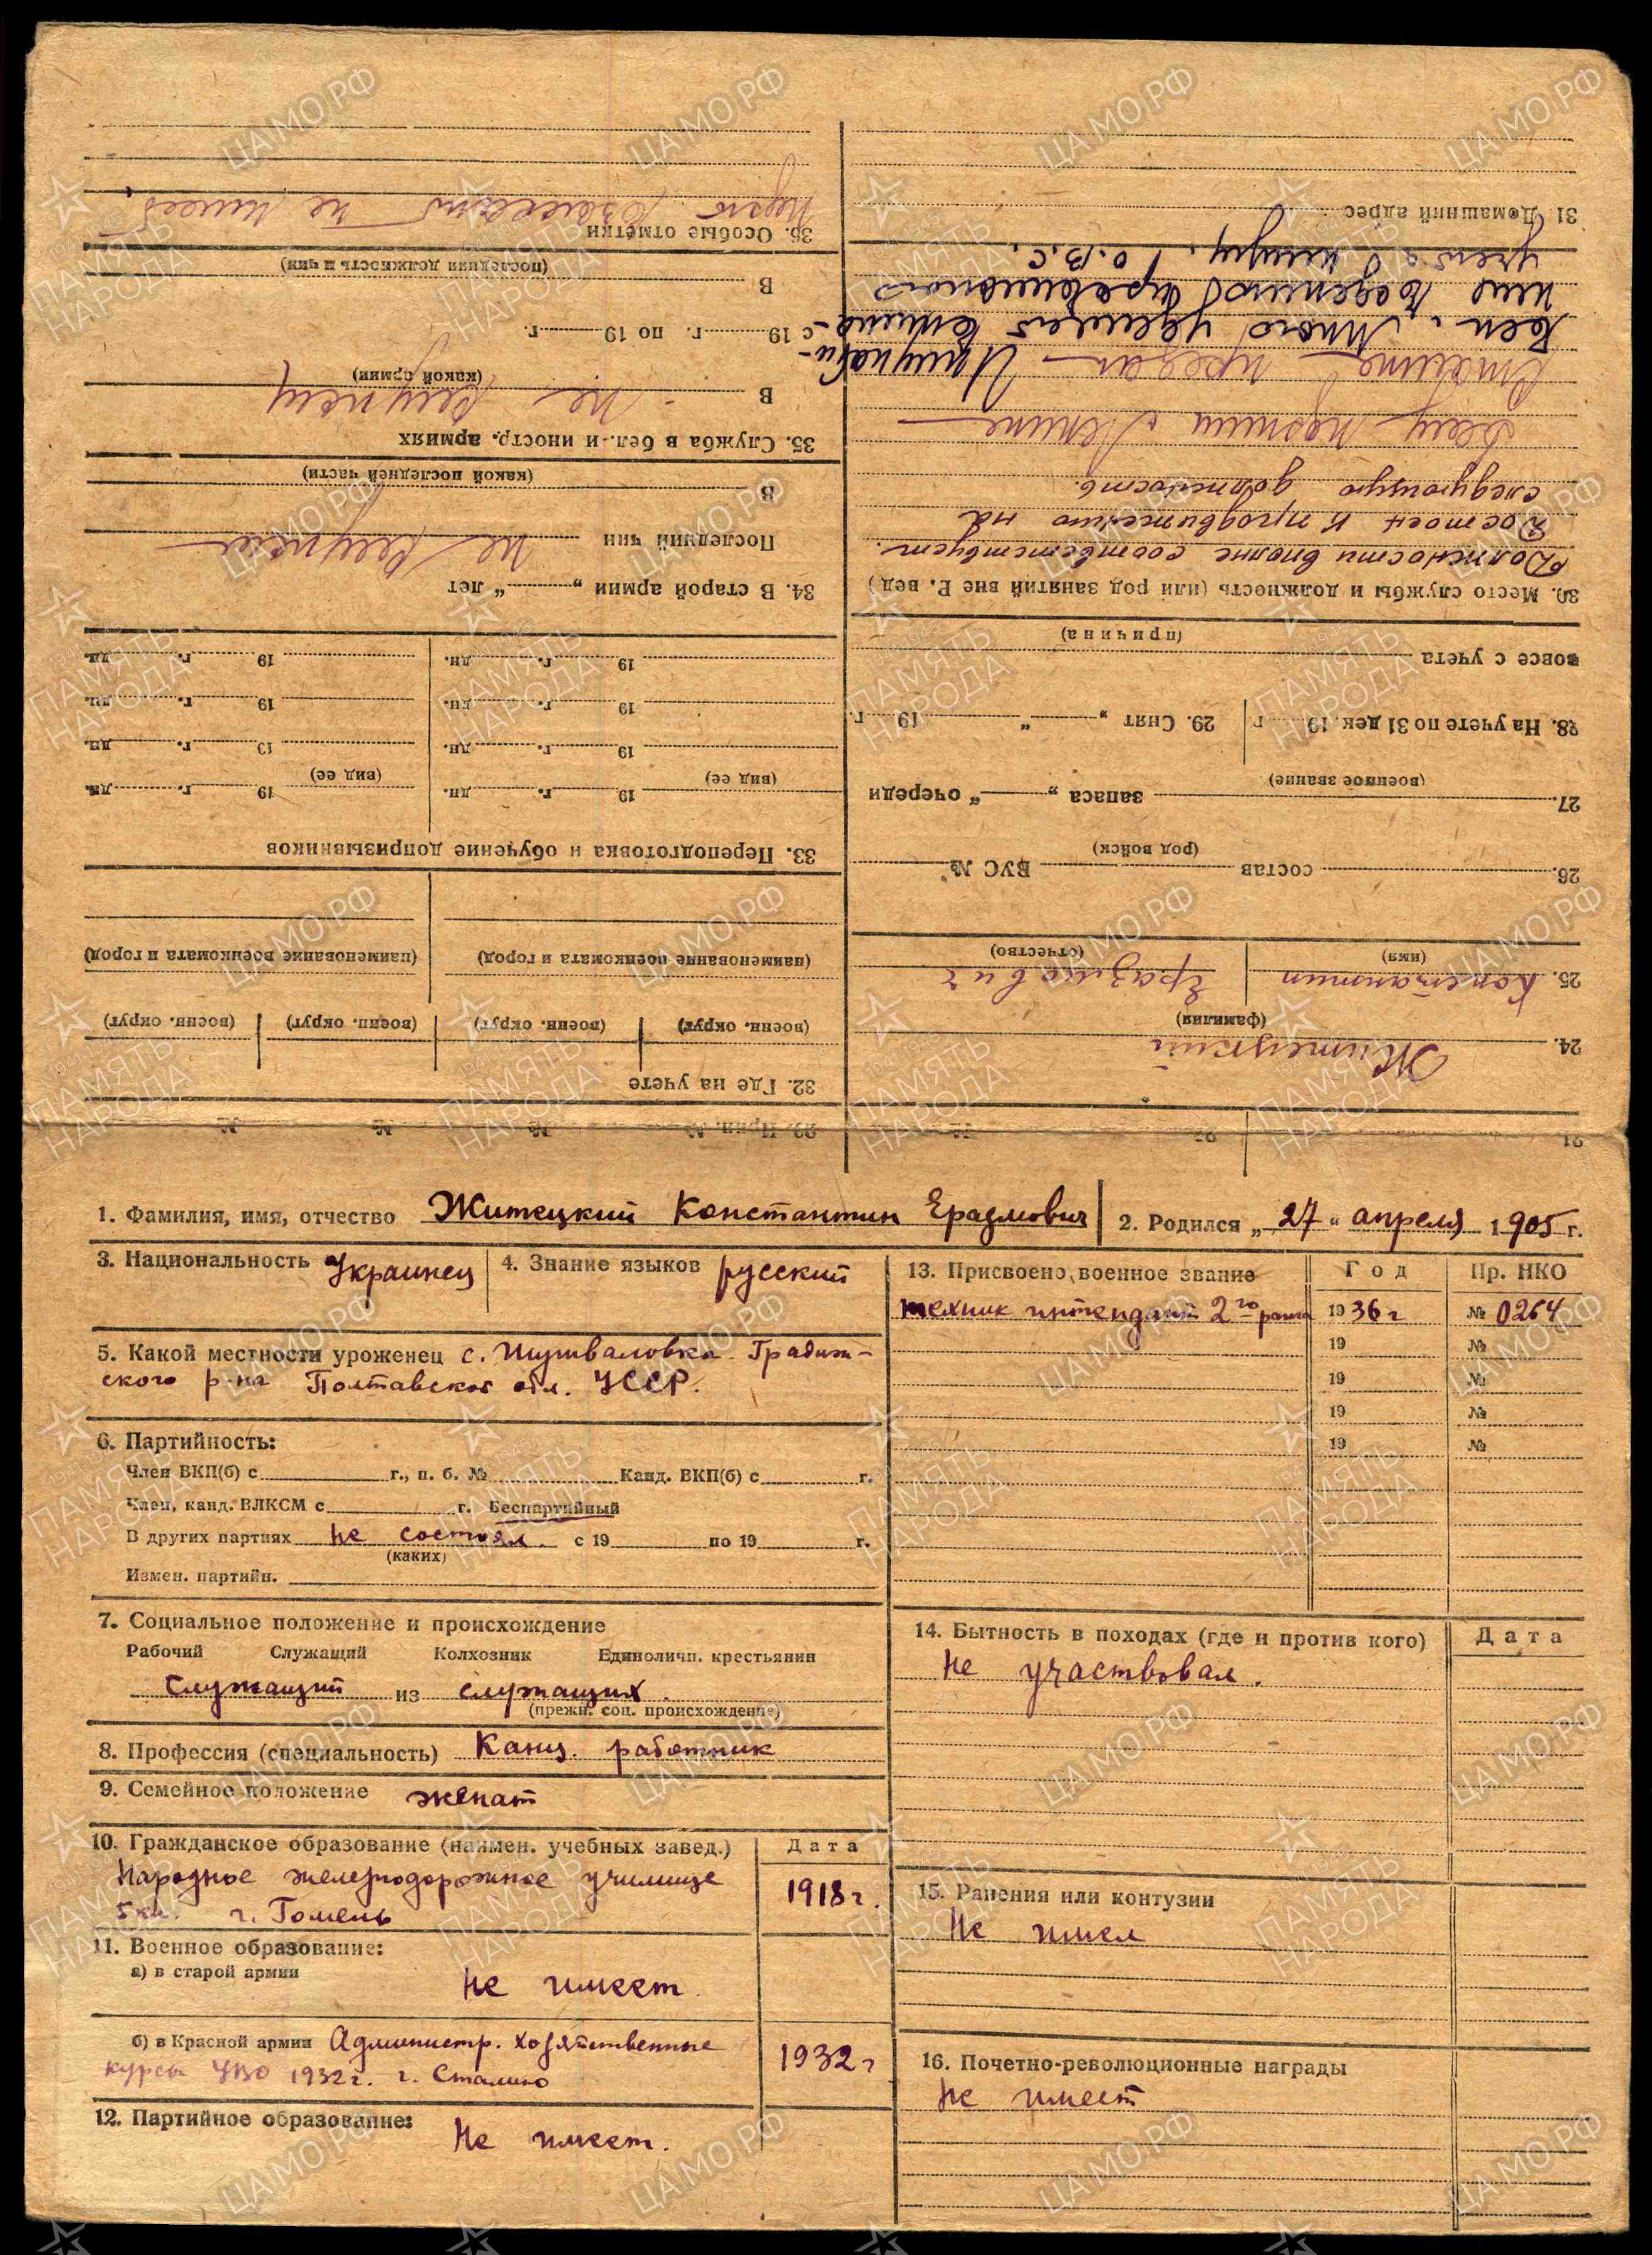 1. Фамилия, имя, отчество Житецкий Константин Ерадмович
2. Родился „27“ апреля 1905 г.
3. Национальность Украинец
4. Знание языков русский
5. Какой местности уроженец с. Шушваловка Градиж-
ского р-на Полтавской обл. УССР.
6. Партийность:
Член ВКП(б) с г., п. б. № Канд. ВКП(б) с г.
Член, канд. ВЛКСМ с г. Беспартийный
В других партиях не состоял. с 19 по 19 г.
(каких)
Измен. партийн.
7. Социальное положение и происхождение
Рабочий Служащий Колхозник Единоличн. крестьянин
Служащий из служащих.
(прежн. соц. происхождение)
8. Профессия (специальность) Канц. работник
9. Семейное положение женат
10. Гражданское образование (наимен. учебных завед.) Дата
Народное железнодорожное училище
5 кл. г. Гомель 1918 г.
11. Военное образование:
а) в старой армии Не имеет.
б) в Красной армии Администр. хозяйственные
курсы УВО 1932 г. г. Сталино 1932 г
12. Партийное образование: Не имеет.
13. Присвоено военное звание Год Пр. НКО
техник интендант 2го ранга 1936 г № 0264
19 №
19 №
19 №
19 №
14. Бытность в походах (где и против кого) Дата
Не участвовал.
15. Ранения или контузии
Не имел
16. Почетно-революционные награды
Не имеет
21
22
23. Прип. № № № №
24. Житецкий
(фамилия)
25. Константин Еразмович
(имя) (отчество)
26. состав ВУС №
(род войск)
27. запаса „ “ очереди
(военное звание)
28. На учете по 31 дек. 19 г
29. Снят „ “ 19 г.
вовсе с учета
(причина)
30. Место службы и должность (или род занятий вне В. вед)
Должности вполне соответствует.
Достоин к продвижению на
следующую должность.
Делу партии Ленина
Сталина предан
31 Домашний адрес
32. Где на учете
(военн. округ) (военн. округ) (военн. округ) (военн. округ)
(наименование военкомата и город) (наименование военкомата и город)
33. Переподготовка и обучение допризывников
19 г. дн. 19 г. дн.
(вид ее) (вид ее)
19 г. дн. 19 г. дн.
19 г. дн. 19 г. дн.
19 г. дн. 19 г. дн.
34. В старой армии „ “ лет
Последний чин не служил
В
(какой последней части)
35. Служба в бел. и иностр. армиях
В не служил
(какой армии)
с 19 г. по 19 г.
В
(последняя должность и чин)
36. Особые отметки
не имеет.
ЦАМО.РФ
ПАМЯТЬ НАРОДА